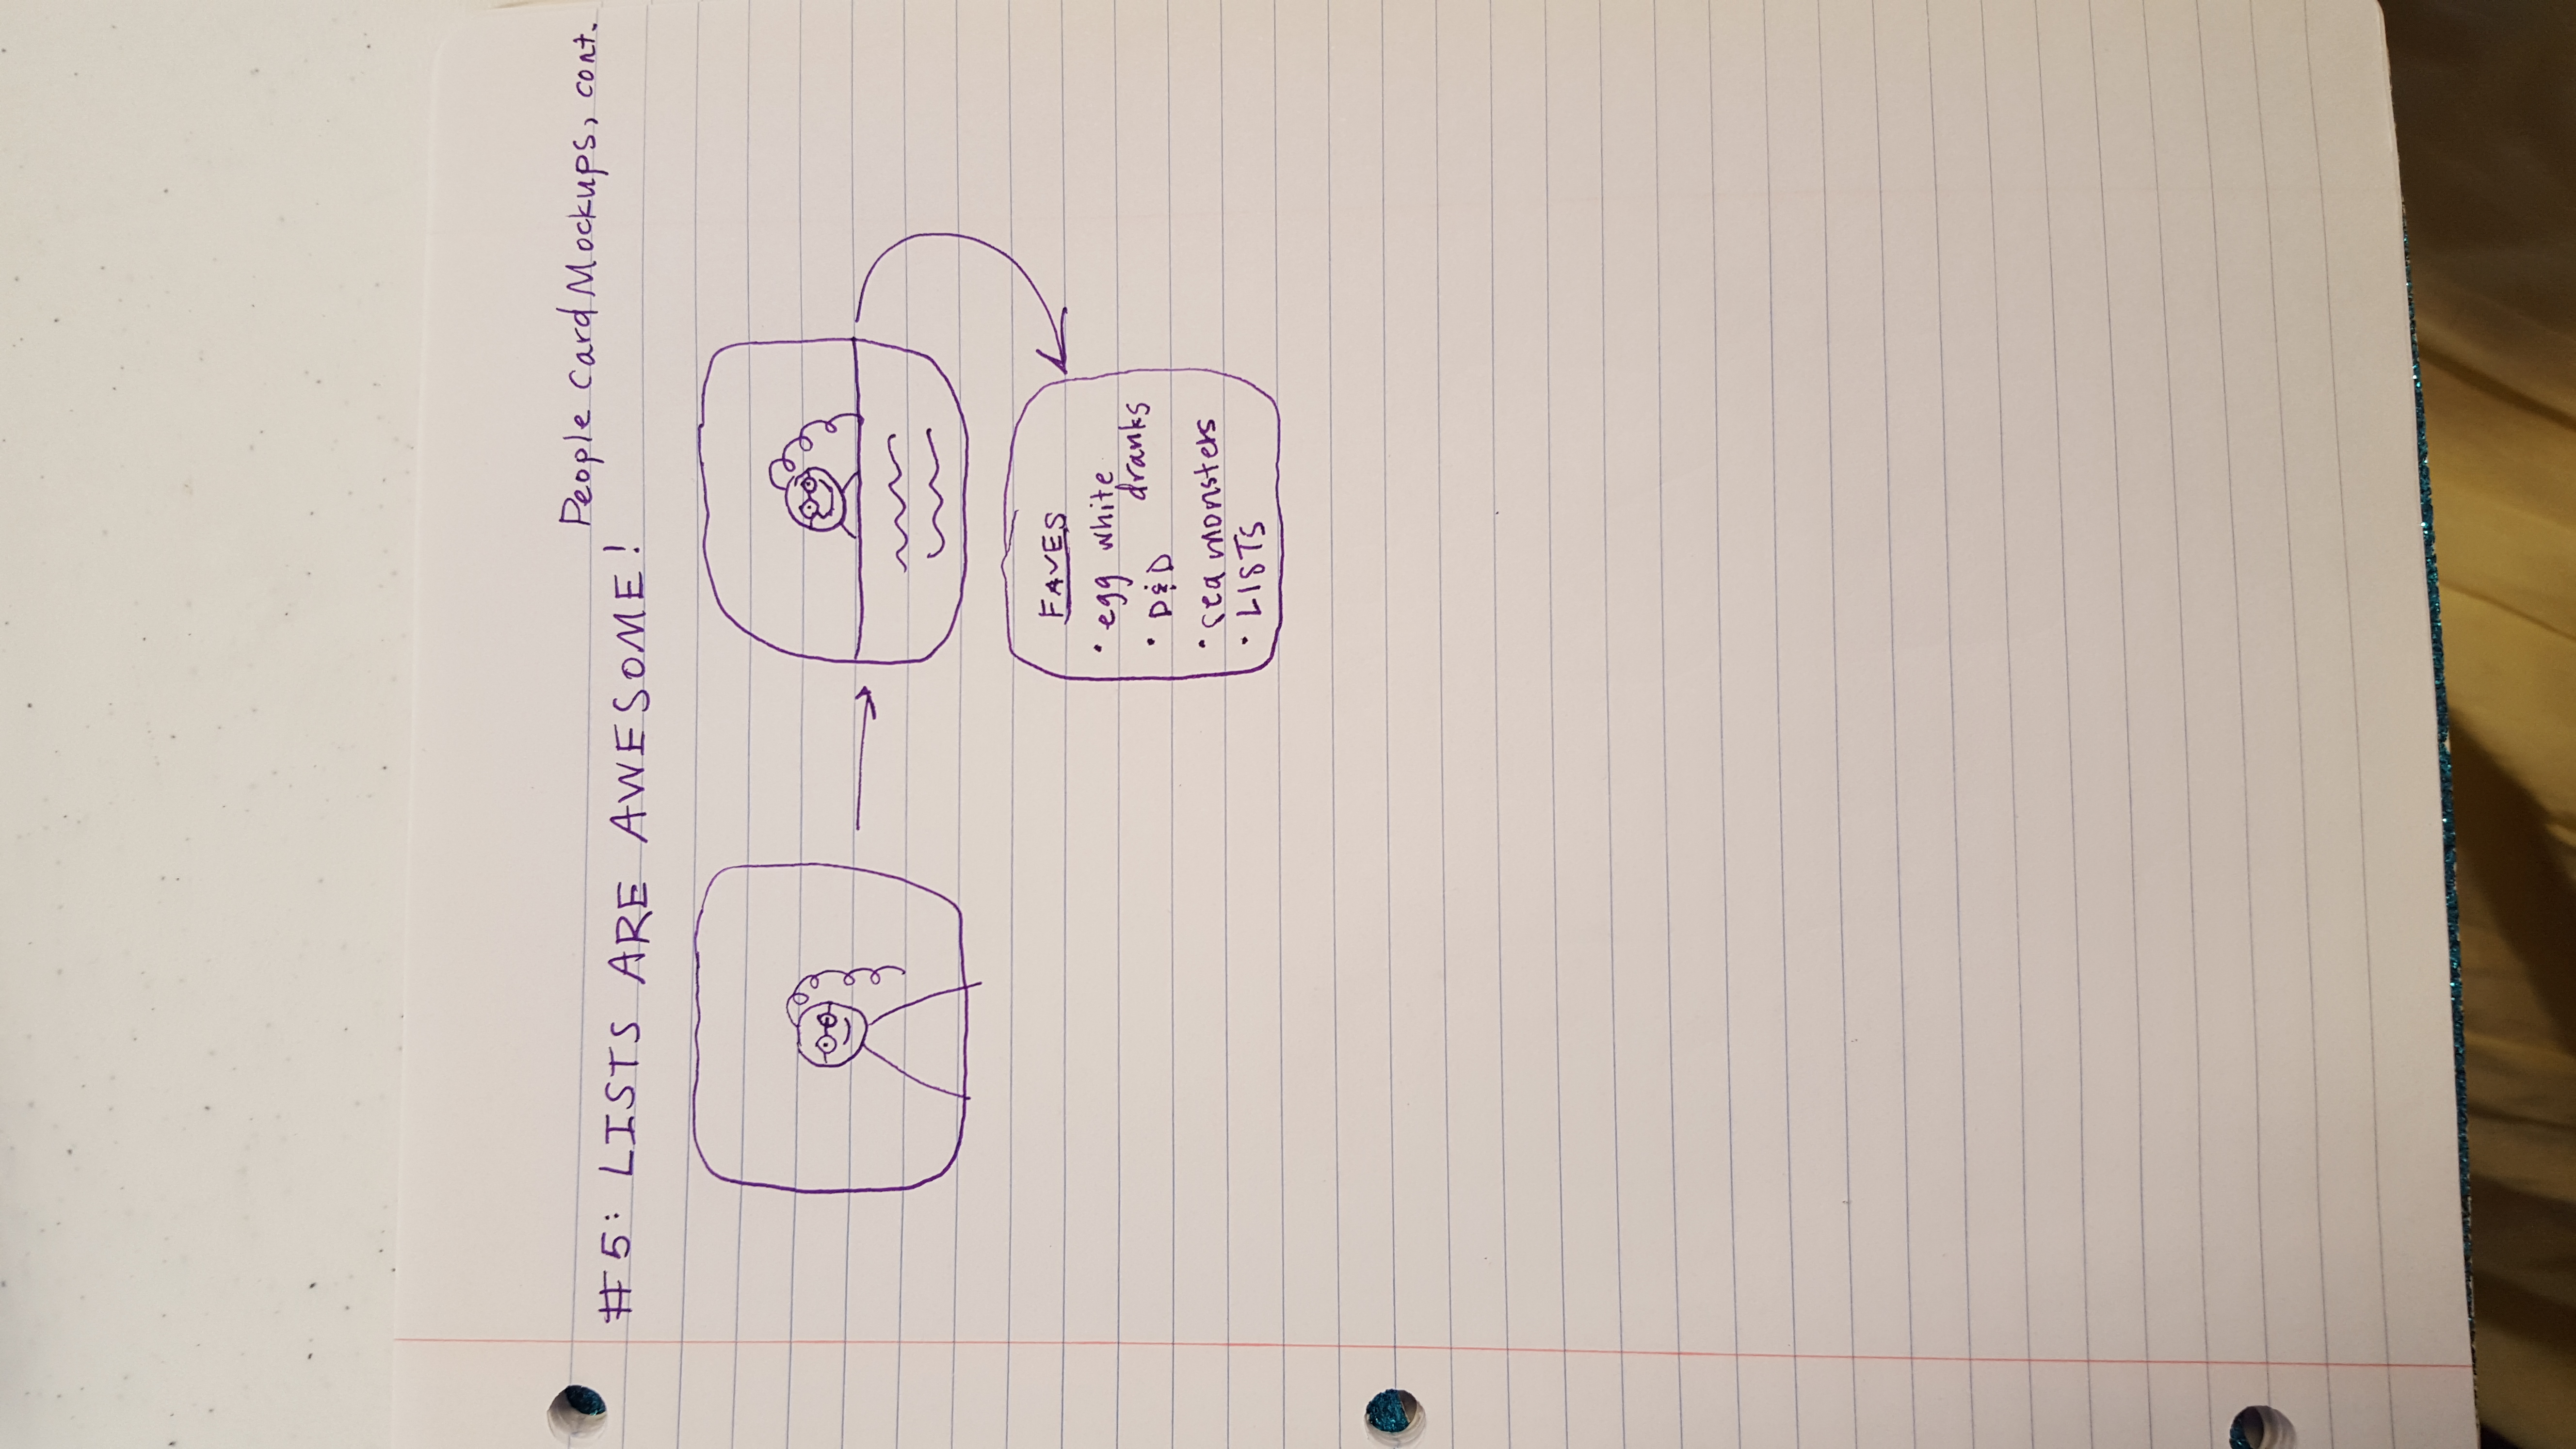 People Card Mockups, cont.
#5: LISTS ARE AWESOME!
FAVES
• egg white
dranks
• D&D
• sea monsters
• LISTS